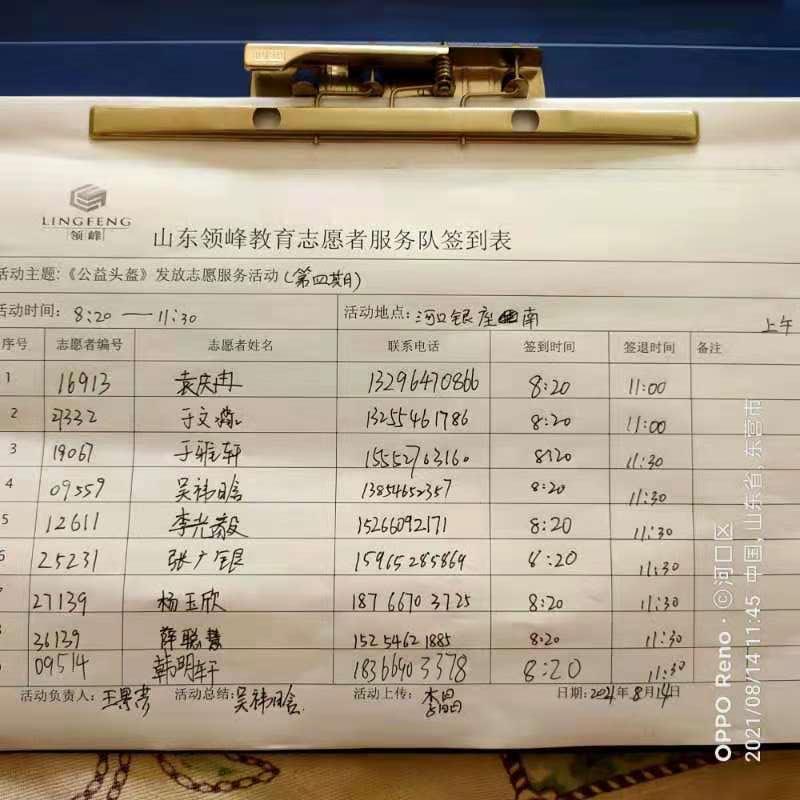 LINGFENG
领峰
山东领峰教育志愿者服务队签到表
活动主题:《公益头盔》发放志愿服务活动(第四期)
活动时间: 8:20 — 11:30 活动地点: 河口银座 南 上午
序号 志愿者编号 志愿者姓名 联系电话 签到时间 签退时间 备注
1 16913 袁庆冉 13296470866 8:20 11:00
2 于文 13255461786 8:20 11:00
3 19067 于雅轩 15552763160 8:20 11:30
4 09559 吴祎晗 13854652357 8:20 11:30
5 12611 李光毅 15266092171 8:20 11:30
6 25231 张广银 15965285869 8:20 11:30
27139 杨玉欣 18766703725 8:20 11:30
36139 薛聪慧 15254621885 8:20 11:30
09514 韩明轩 18366403378 8:20 11:30
活动负责人: 王 活动总结: 吴祎晗 活动上传: 李 日期: 2021年8月14日
OPPO Reno · ©河口区
2021/08/14 11:45 中国, 山东省, 东营市